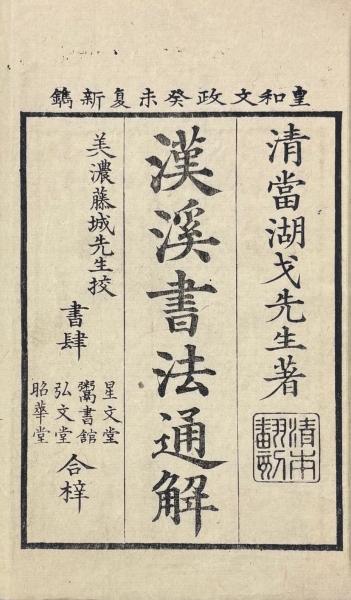 皇和文政癸未夏新鐫
清當湖戈先生著
清本
翻刻
漢溪書法通解
美濃藤城先生挍
書肆
星文堂
鬻書館
弘文堂
昭華堂
合梓